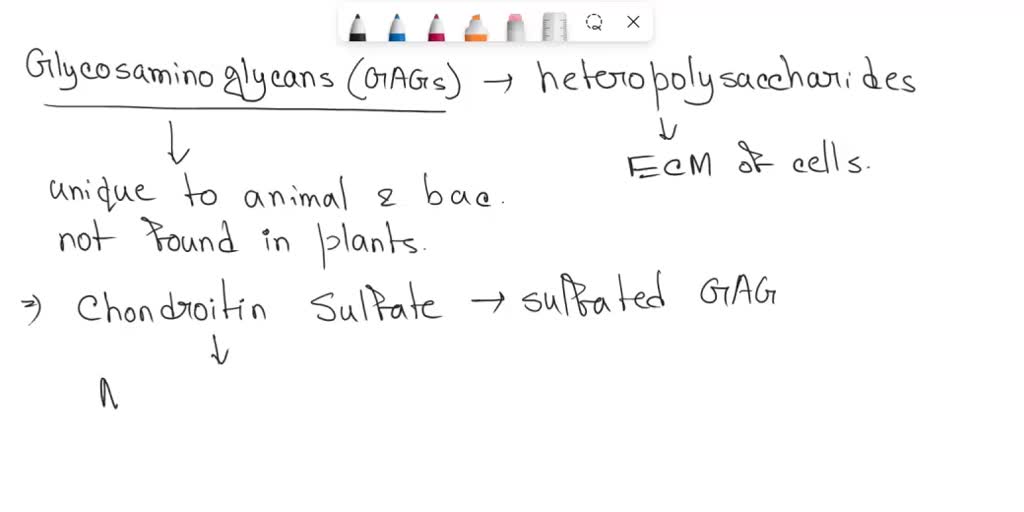 Glycosaminoglycans (GAGs) → heteropolysaccharides
↓ ↓
ECM of cells.
unique to animal & bac.
not found in plants.
⇒ Chondroitin Sulfate → sulfated GAG
↓